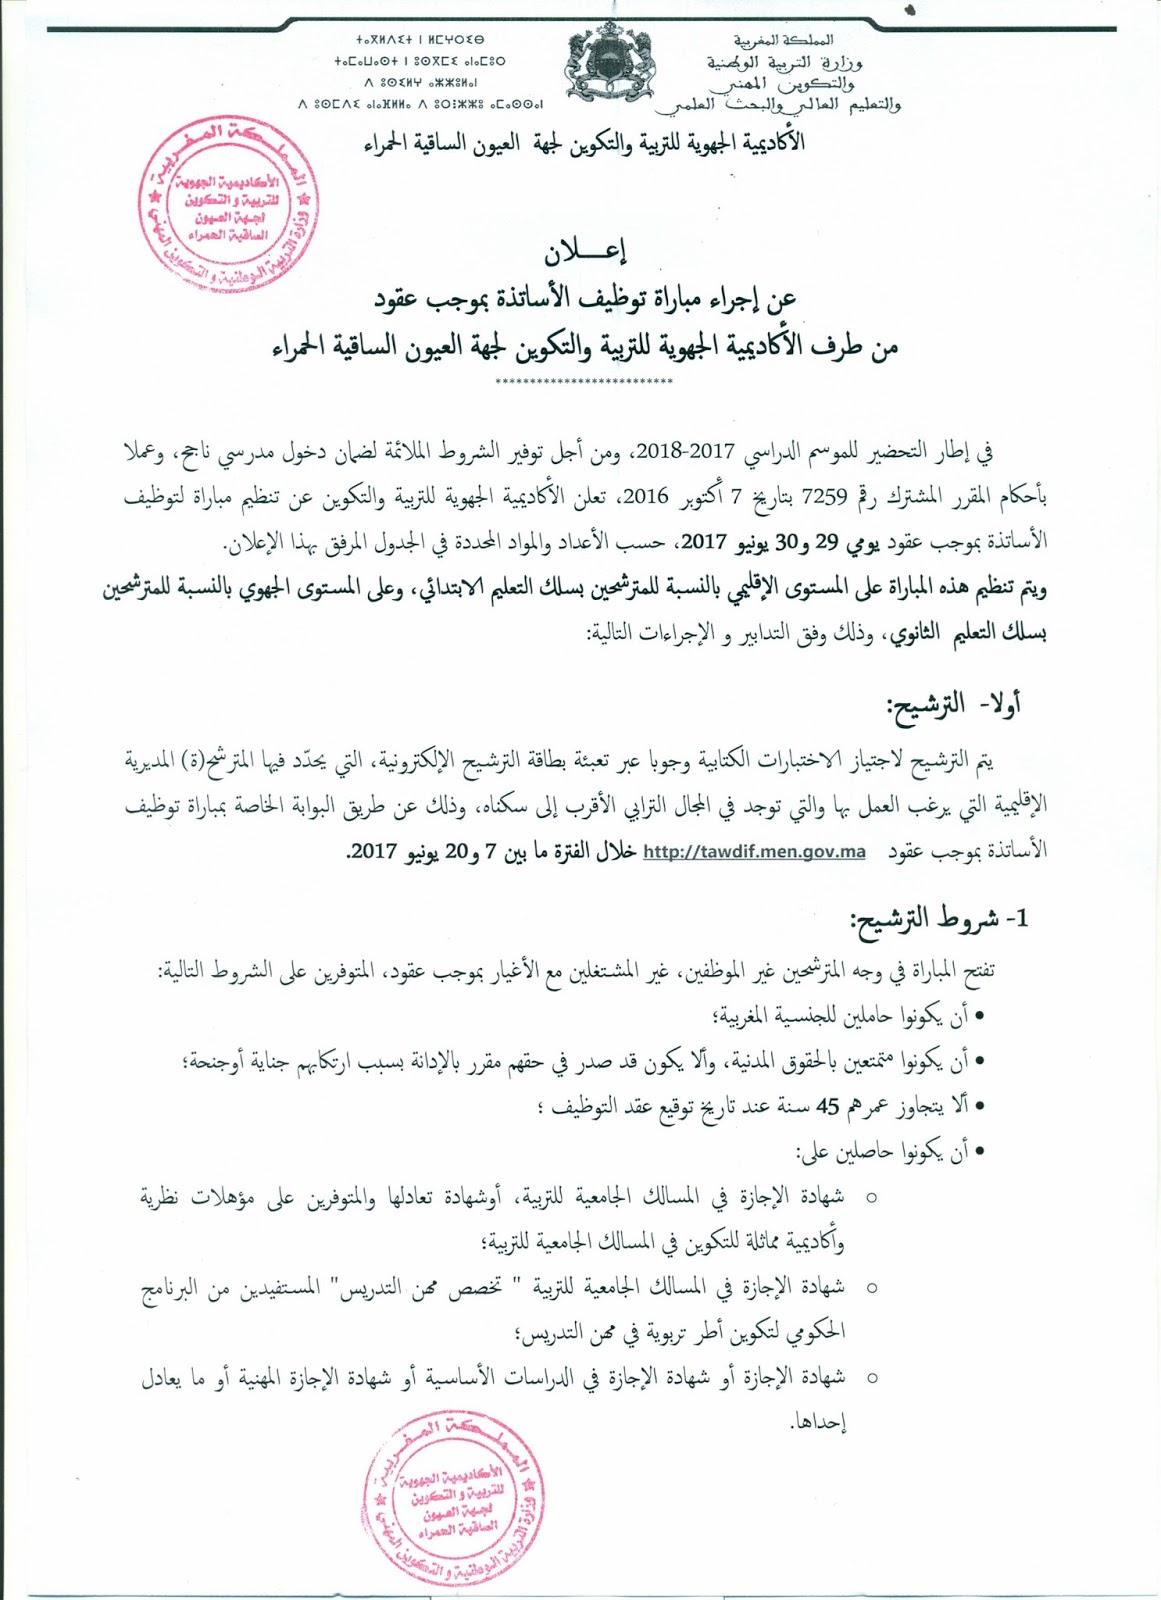 المملكة المغربية
وزارة التربية الوطنية
والتكوين المهني
والتعليم العالي والبحث العلمي
ⵜⴰⴳⵍⴷⵉⵜ ⵏ ⵍⵎⵖⵔⵉⴱ
ⵜⴰⵎⴰⵡⴰⵙⵜ ⵏ ⵓⵙⴳⵎⵉ ⴰⵏⴰⵎⵓⵔ
ⴷ ⵓⵙⵎⵓⵜⵜⴳ ⴰⵣⵣⵓⵍⴰⵏ
ⴷ ⵓⵙⵙⵍⵎⴷ ⴰⵏⴰⴼⵍⵍⴰ ⴷ ⵓⵔⵣⵣⵓ ⴰⵎⴰⵙⵙⴰⵏ
الأكاديمية الجهوية للتربية والتكوين لجهة العيون الساقية الحمراء
المملكة المغربية
وزارة التربية الوطنية و التكوين المهني
الأكاديمية الجهوية
للتربية و التكوين
لجهة العيون
الساقية الحمراء
إعـــلان
عن إجراء مباراة توظيف الأساتذة بموجب عقود
من طرف الأكاديمية الجهوية للتربية والتكوين لجهة العيون الساقية الحمراء
**************************
في إطار التحضير للموسم الدراسي 2017-2018، ومن أجل توفير الشروط الملائمة لضمان دخول مدرسي ناجح، وعملا
بأحكام المقرر المشترك رقم 7259 بتاريخ 7 أكتوبر 2016، تعلن الأكاديمية الجهوية للتربية والتكوين عن تنظيم مباراة لتوظيف
الأساتذة بموجب عقود يومي 29 و30 يونيو 2017، حسب الأعداد والمواد المحددة في الجدول المرفق بهذا الإعلان.
ويتم تنظيم هذه المباراة على المستوى الإقليمي بالنسبة للمترشحين بسلك التعليم الابتدائي، وعلى المستوى الجهوي بالنسبة للمترشحين
بسلك التعليم الثانوي، وذلك وفق التدابير و الإجراءات التالية:
أولا- الترشيح:
يتم الترشيح لاجتياز الاختبارات الكتابية وجوبا عبر تعبئة بطاقة الترشيح الإلكترونية، التي يحدّد فيها المترشح(ة) المديرية
الإقليمية التي يرغب العمل بها والتي توجد في المجال الترابي الأقرب إلى سكناه، وذلك عن طريق البوابة الخاصة بمباراة توظيف
الأساتذة بموجب عقود http://tawdif.men.gov.ma خلال الفترة ما بين 7 و20 يونيو 2017.
1- شروط الترشيح:
تفتح المباراة في وجه المترشحين غير الموظفين، غير المشتغلين مع الأغيار بموجب عقود، المتوفرين على الشروط التالية:
• أن يكونوا حاملين للجنسية المغربية؛
• أن يكونوا متمتعين بالحقوق المدنية، وألا يكون قد صدر في حقهم مقرر بالإدانة بسبب ارتكابهم جناية أوجنحة؛
• ألا يتجاوز عمرهم 45 سنة عند تاريخ توقيع عقد التوظيف ؛
• أن يكونوا حاصلين على:
o شهادة الإجازة في المسالك الجامعية للتربية، أوشهادة تعادلها والمتوفرين على مؤهلات نظرية
وأكاديمية مماثلة للتكوين في المسالك الجامعية للتربية؛
o شهادة الإجازة في المسالك الجامعية للتربية " تخصص مهن التدريس" المستفيدين من البرنامج
الحكومي لتكوين أطر تربوية في مهن التدريس؛
o شهادة الإجازة أو شهادة الإجازة في الدراسات الأساسية أو شهادة الإجازة المهنية أو ما يعادل
إحداها.
المملكة المغربية
وزارة التربية الوطنية و التكوين المهني
الأكاديمية الجهوية
للتربية و التكوين
لجهة العيون
الساقية الحمراء